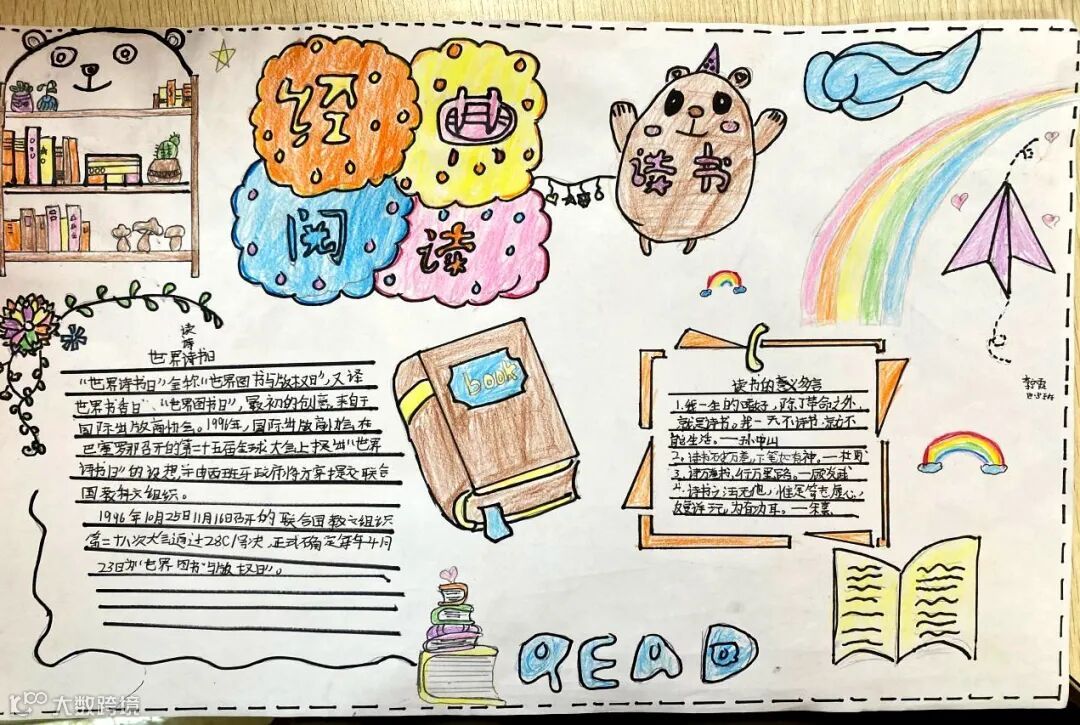 经典
阅读
读书
读
世界读书日
"世界读书日"全称"世界图书与版权日",又译
世界书香日、"世界图书日",最初的创意来自于
国际出版商协会。1996年,国际出版商协会在
巴塞罗那召开的第二十五届全球大会上提出"世界
读书日"的设想,并由西班牙政府将方案提交联合
国教科文组织。
1996年10月25日11月16日召开的联合国教文组织
第二十八次大会通过28C/号决,正式确定每年4月
23日为"世界图书与版权日"。
book
读书的意义名言
1.我一生的嗜好,除了革命之外
就是读书。我一天不读书,就不
能生活。——孙中山
2.读书破万卷,下笔如有神。——杜甫
3.读万卷书,行万里路。——顾炎武
4.读书之法无他,惟是笃志虚心,
反复详玩,为有功耳。——朱熹
READ
大数跨境